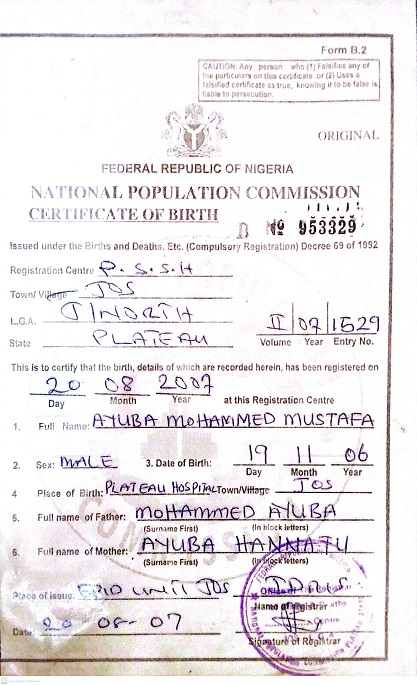 Form B.2
CAUTION: Any person who (1) Falsifies any of
the particulars on this certificate or (2) Uses a
falsified certificate as true, knowing it to be false is
liable to persecution.
ORIGINAL
FEDERAL REPUBLIC OF NIGERIA
NATIONAL POPULATION COMMISSION
CERTIFICATE OF BIRTH
B No 953329
Issued under the Births and Deaths, Etc. (Compulsory Registration) Decree 69 of 1992
Registration Centre P.S.S.H
Town/Village JOS
L.G.A. J/NORTH
State PLATEAU
II 07 1529
Volume Year Entry No.
This is to certify that the birth, details of which are recorded herein, has been registered on
20 08 2007
Day Month Year at this Registration Centre
1. Full Name: AYUBA MOHAMMED MUSTAFA
2. Sex: MALE 3. Date of Birth: 19 11 06
Day Month Year
4 Place of Birth: PLATEAU HOSPITAL Town/Village JOS
5. Full name of Father: MOHAMMED AYUBA
(Surname First) (In block letters)
6. Full name of Mother: AYUBA HANNATU
(Surname First) (In block letters)
Place of issue: UNIT JOS
Name of Registrar
Date: 20-08-07
Signature of Registrar